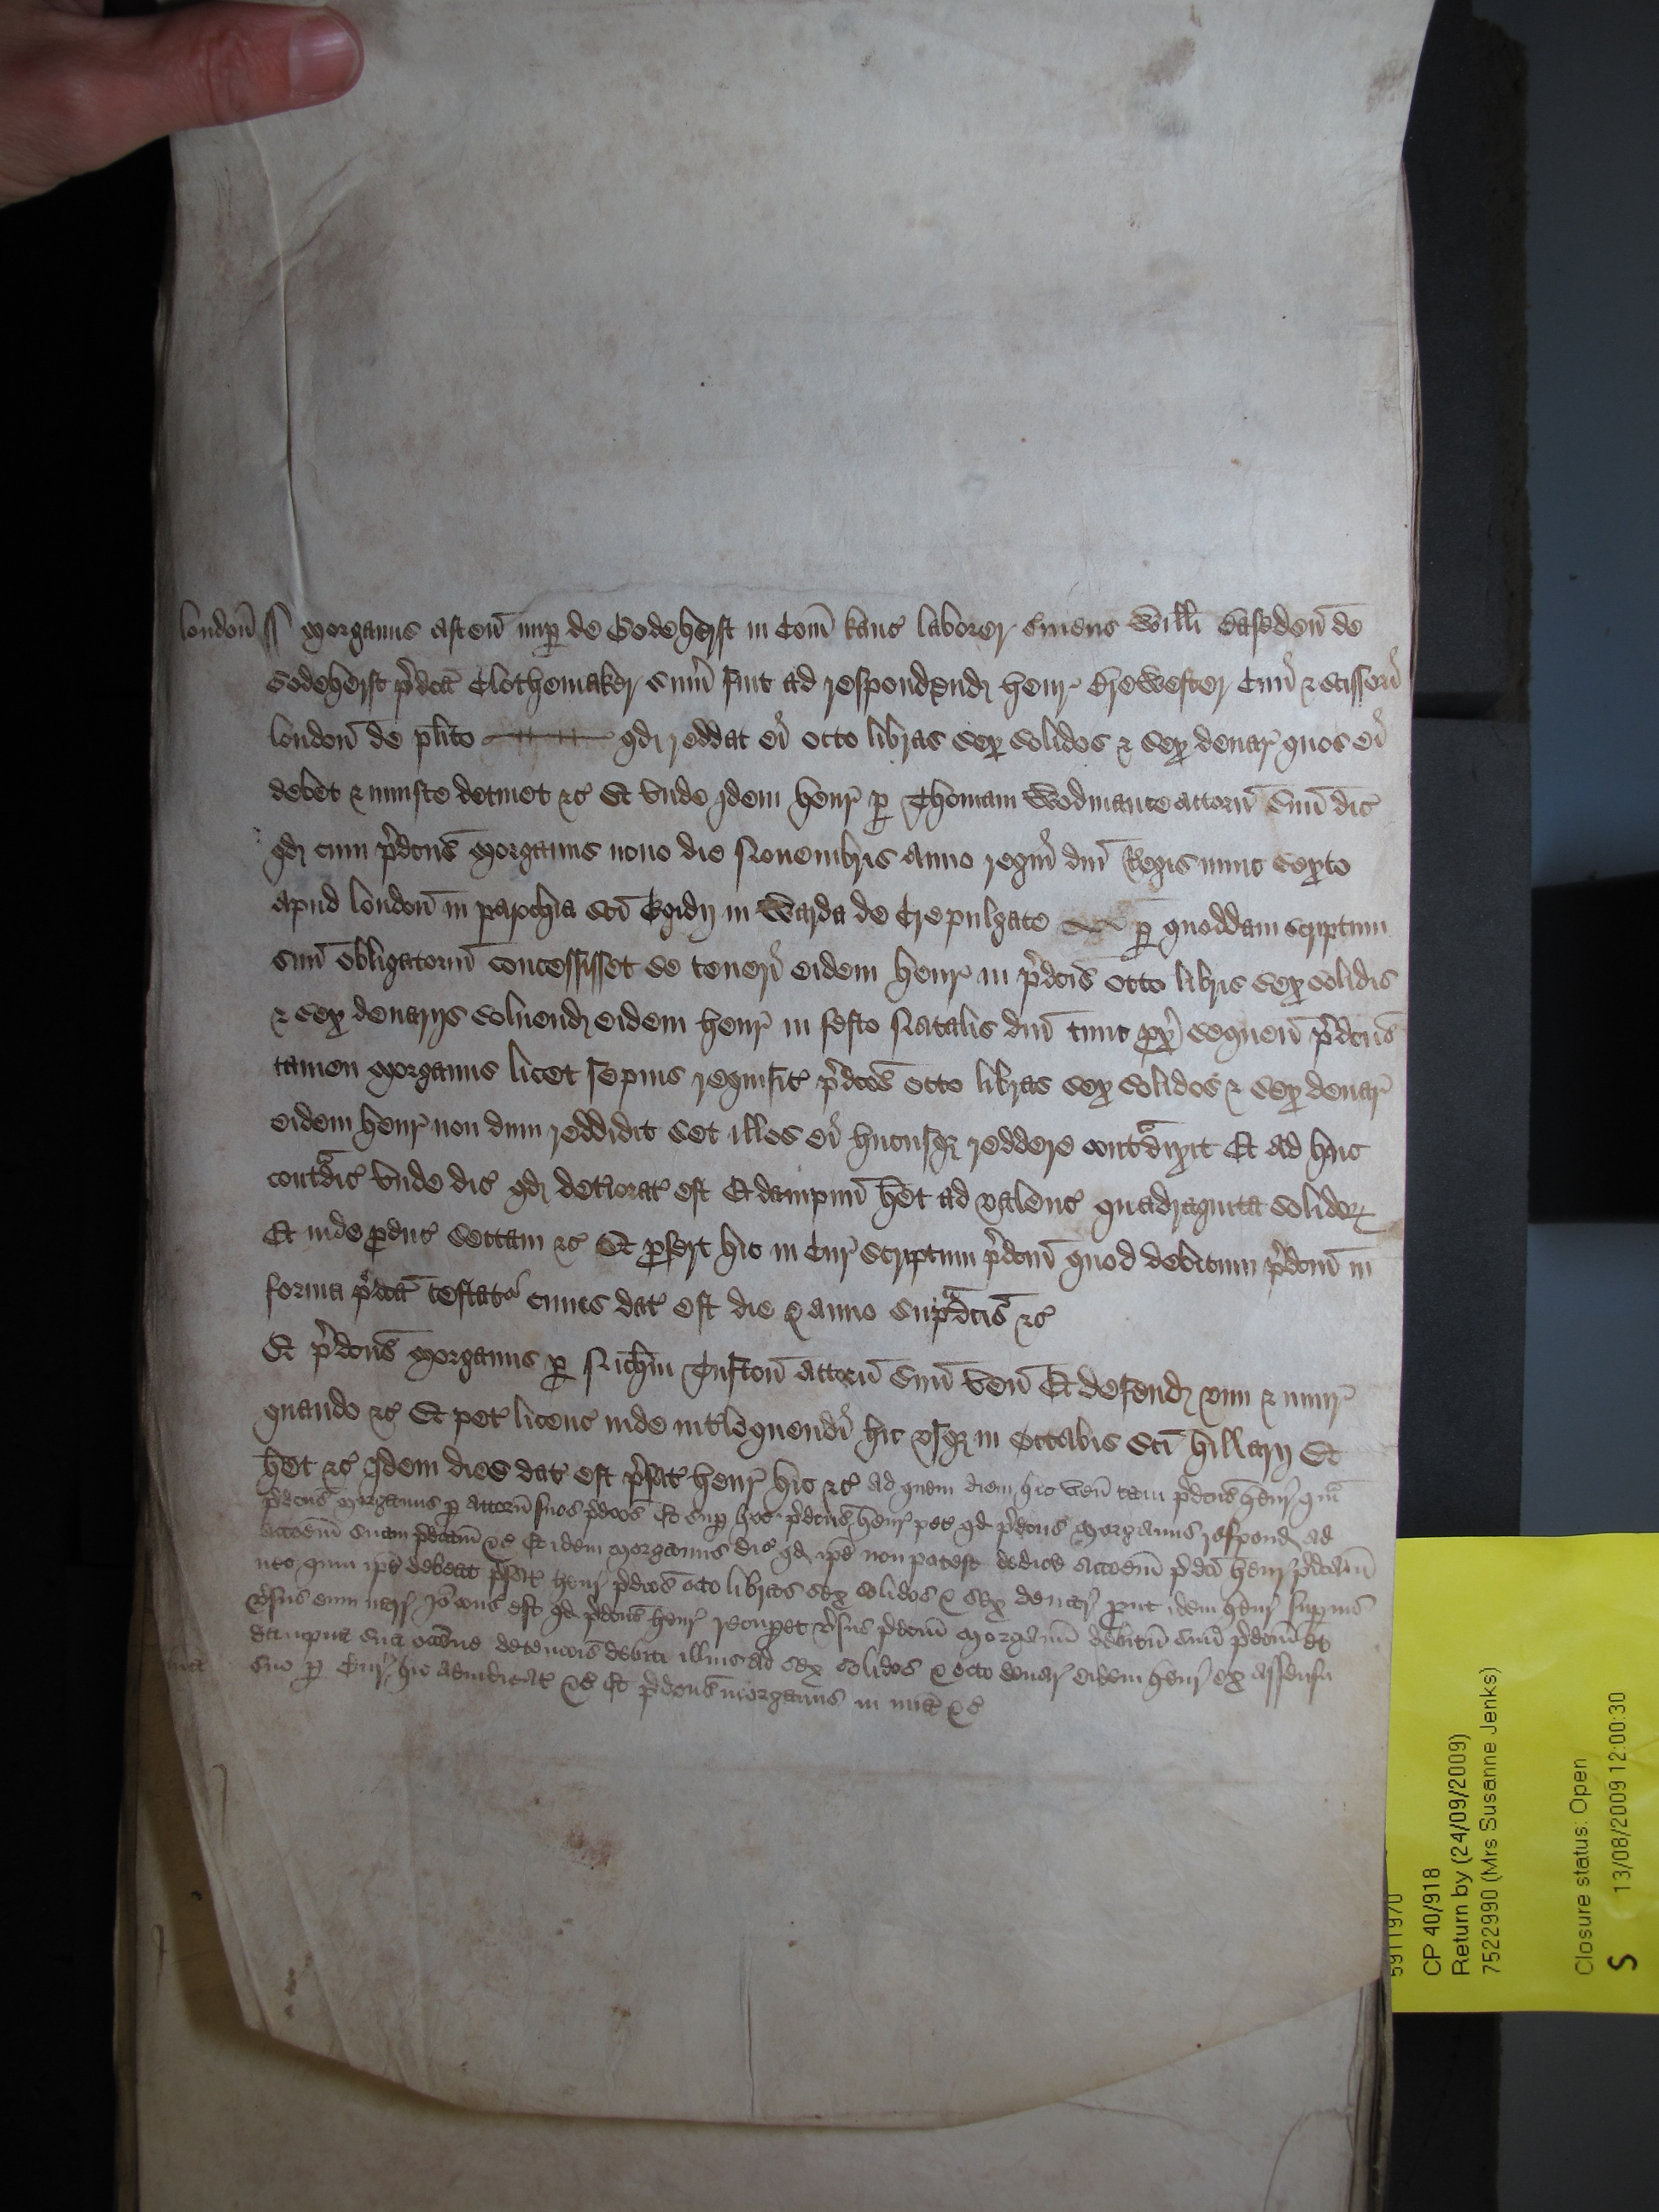 londoñ ss Morganus Asteñ nup de Godeherst in Com̃ Kanc laborer s̃uiens Willi de
Godeherst p̃dc̃a Clothemaker sum̃ fuit ad respondend henr̃ Brewester Ciui & Cissori
londoñ de pl̃ito qd reddat ei octo libras sex solidos & sex denar̃ quos ei
debet & iniuste detinet &c Et vnde idem henr̃ p Thomam Wodmance attorñ suũ dic̃
qd cum p̃dc̃us Morganus nono die Nouembris anno regni dñi Regis nunc sexto
apud londoñ in parochia sc̃i Egidij in Warda de Crepulgate p quoddam scriptum
suũ obligatoriũ concessisset se teneri eidem henr̃ in p̃dc̃is octo libris sex solidis
& sex denarijs soluend eidem henr̃ in festo Natalis dñi tunc px̃ sequeñ p̃dc̃us
tamen Morganus licet sepius requisit̃ p̃dc̃as octo libras sex solidos & sex denar̃
eidem henr̃ non dum reddidit set illos ei hucusq reddere contᵃdixit Et ad huc
contᵃdic̃ vnde dic̃ qd det̃iorat̃ est Et dampnũ het ad valenc̃ quadraginta solidoꝝ
Et inde pduc̃ sectam &c Et pfert hic in Cur̃ scriptum p̃dc̃m̃ quod debitum p̃dc̃m̃ in
forma p̃dc̃a testatʳ cuius dat̃ est die & anno supᵃdc̃is &c
Et p̃dc̃us Morganus p Nich̃m Tufton attorñ suũ veñ Et defend vim & iniur̃
quando &c Et pet̃ licenc̃ inde int̃loquendi hic vsq in Octabis sc̃i hillarij Et
het &c Idem dies dat̃ est p̃fat̃ henr̃ hic &c Ad quem diem hic veñ tam p̃dc̃us henr̃ qᵃm
p̃dc̃us Morganus p attorñ suos p̃dc̃os Et sup hoc p̃dc̃us henr̃ pet̃ qd p̃dc̃us Morganus respond ad
acc̃oem̃ suam p̃dc̃am &c Et idem Morganus dic̃ qd ip̃e non potest dedic̃e acc̃oem̃ p̃dc̃i henr̃ p̃dc̃am
nec quin ip̃e debeat p̃fat̃ henr̃ p̃dc̃as octo libras sex solidos & sex denar̃ put idem henr̃ supius
ṽsus eum narr̃ Iõ cons̃ est qd p̃dc̃us henr̃ recupet ṽsus p̃dc̃m̃ Morganũ debitũ suũ p̃dc̃m̃ Et
dampna sua occ̃one detenc̃ois debiti illius ad sex solidos & octo denar̃ eidem henr̃ ex assensu
mĩa suo p Cur̃ hic adiudicat̃ &c Et p̃dc̃us Morganus in mĩa &c
5911970
CP 40/918
Return by (24/09/2009)
7522990 (Mrs Susanne Jenks)
Closure status: Open
S 13/08/2009 12:00:30